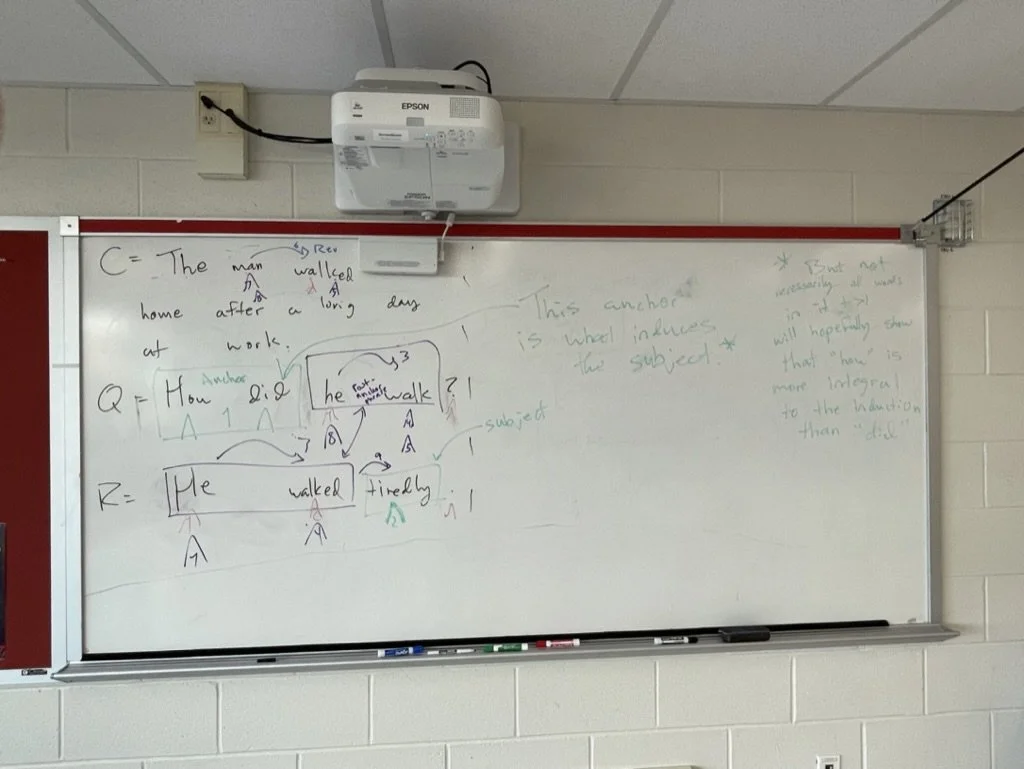 EPSON
Rev
C = The man walked
home after a long day
at work.
This anchor
is what induces
the subject. *
* But not
necessarily all words
in it
will hopefully show
that "how" is
more integral
to the induction
than "did"
Anchor
3
Q = How did he walk ?
post-anchor phrase
1
8
4
5
subject
7
9
R = He walked tiredly .
2
7
9